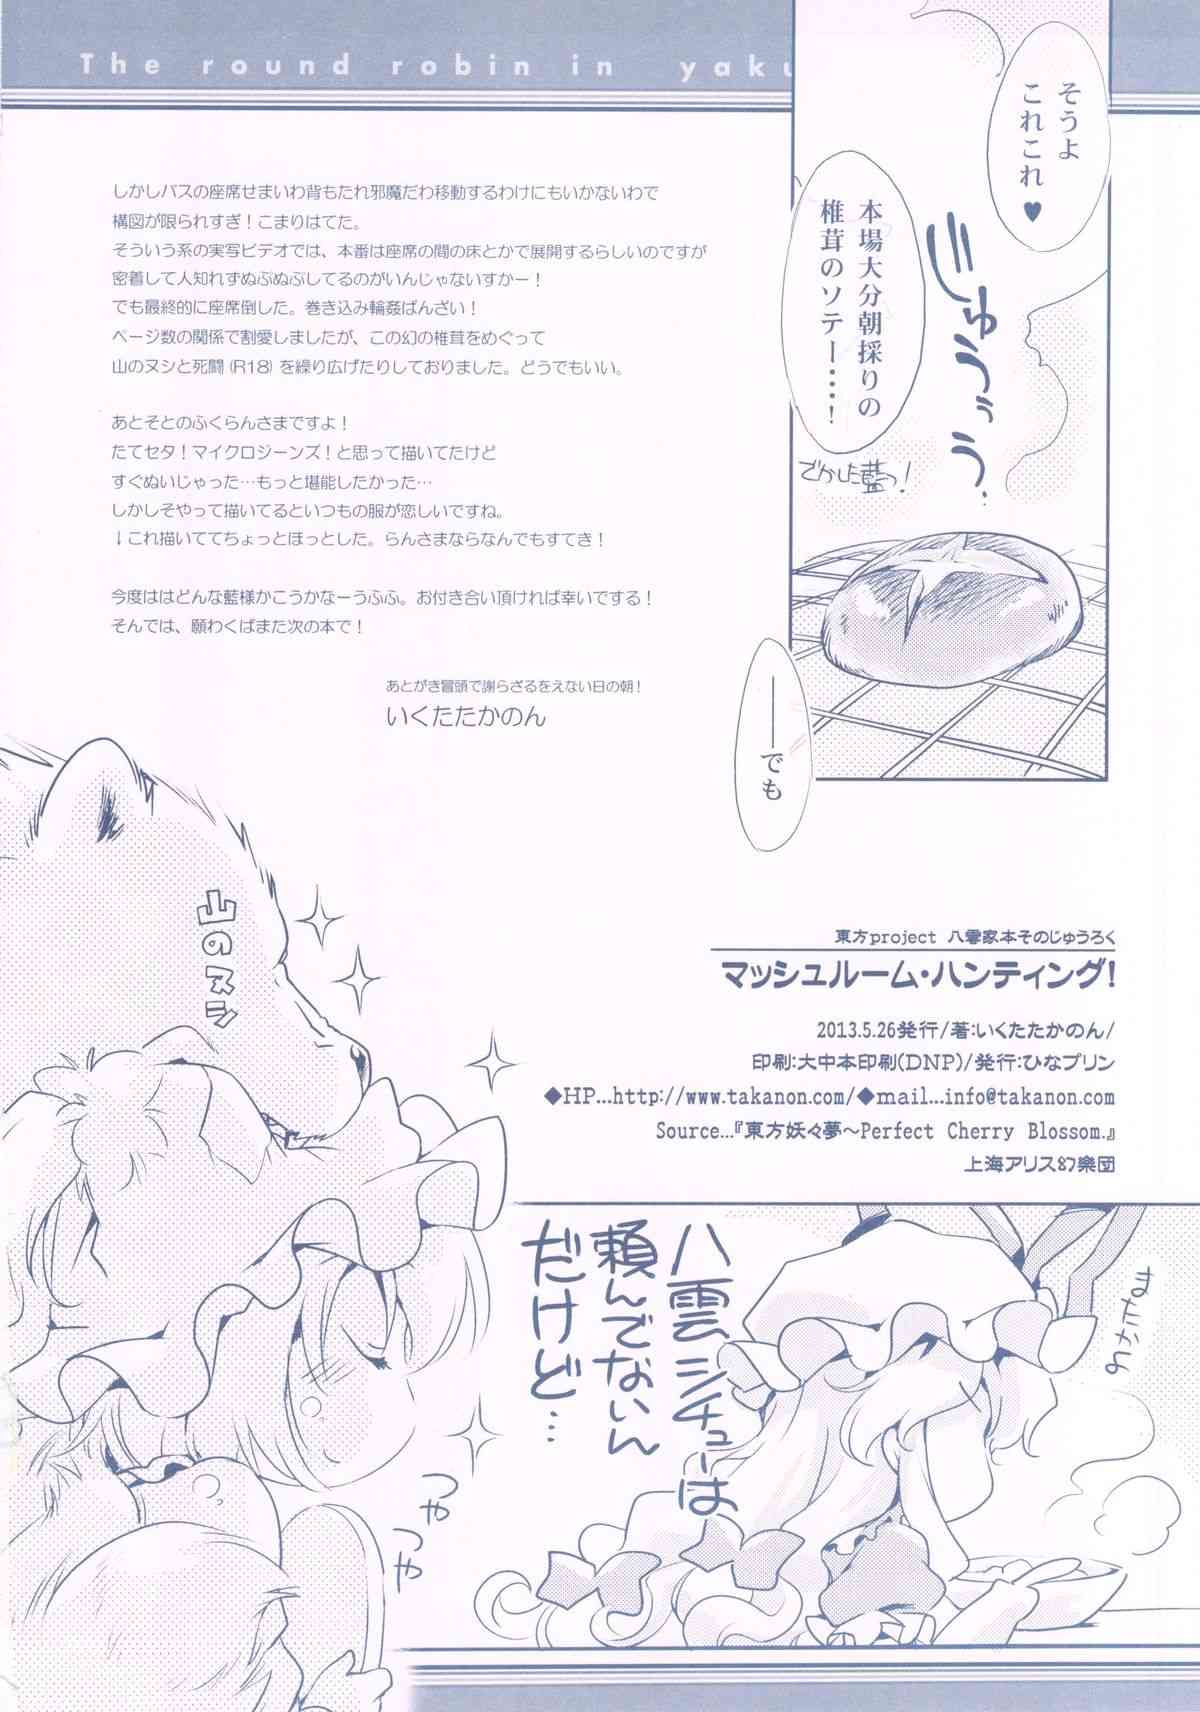 The round robin in yaku
そうよ
これこれ♥
本場大分朝採りの
椎茸のソテー‥‥!
でかした藍っ!
しかしバスの座席せまいわ背もたれ邪魔だわ移動するわけにもいかないわで
構図が限られすぎ！こまりはてた。
そういう系の実写ビデオでは、本番は座席の間の床とかで展開するらしいのですが
密着して人知れずぬぷぬぷしてるのがいんじゃないすかー！
でも最終的に座席倒した。巻き込み輪姦ばんざい！
ページ数の関係で割愛しましたが、この幻の椎茸をめぐって
山のヌシと死闘(R18)を繰り広げたりしておりました。どうでもいい。
あとそとのふくらんさまですよ！
たてセタ！マイクロジーンズ！と思って描いてたけど
すぐぬいじゃった…もっと堪能したかった…
しかしそやって描いてるといつもの服が恋しいですね。
↓これ描いててちょっとほっとした。らんさまならなんでもすてき！
今度ははどんな藍様かこうかなーうふふ。お付き合い頂ければ幸いでする！
そんでは、願わくばまた次の本で！
あとがき冒頭で謝らざるをえない日の朝！
いくたたかのん
――でも
山のヌシ
東方project 八雲家本そのじゅうろく
マッシュルーム・ハンティング!
2013.5.26発行/著:いくたたかのん/
印刷:大中本印刷(DNP)/発行:ひなプリン
◆HP...http://www.takanon.com/◆mail...info@takanon.com
Source...『東方妖々夢～Perfect Cherry Blossom.』
上海アリス幻樂団
八雲シチューは
頼んでないん
だけど…
つや
つや